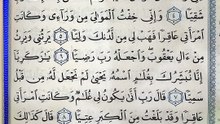 شَقِيًّا ٤ وَإِنِّي خِفْتُ الْمَوَالِيَ مِن وَرَاءِي وَكَانَتِ
امْرَأَتِي عَاقِرًا فَهَبْ لِي مِن لَّدُنكَ وَلِيًّا ٥ يَرِثُنِي وَيَرِثُ
مِنْ ءَالِ يَعْقُوبَ وَاجْعَلْهُ رَبِّ رَضِيًّا ٦ يَٰزَكَرِيَّا
إِنَّا نُبَشِّرُكَ بِغُلَٰمٍ اسْمُهُ يَحْيَىٰ لَمْ نَجْعَل لَّهُ مِن قَبْلُ
سَمِيًّا ٧ قَالَ رَبِّ أَنَّىٰ يَكُونُ لِي غُلَٰمٌ وَكَانَتِ امْرَأَتِي
عَاقِرًا وَقَدْ بَلَغْتُ مِنَ الْكِبَرِ عِتِيًّا ٨